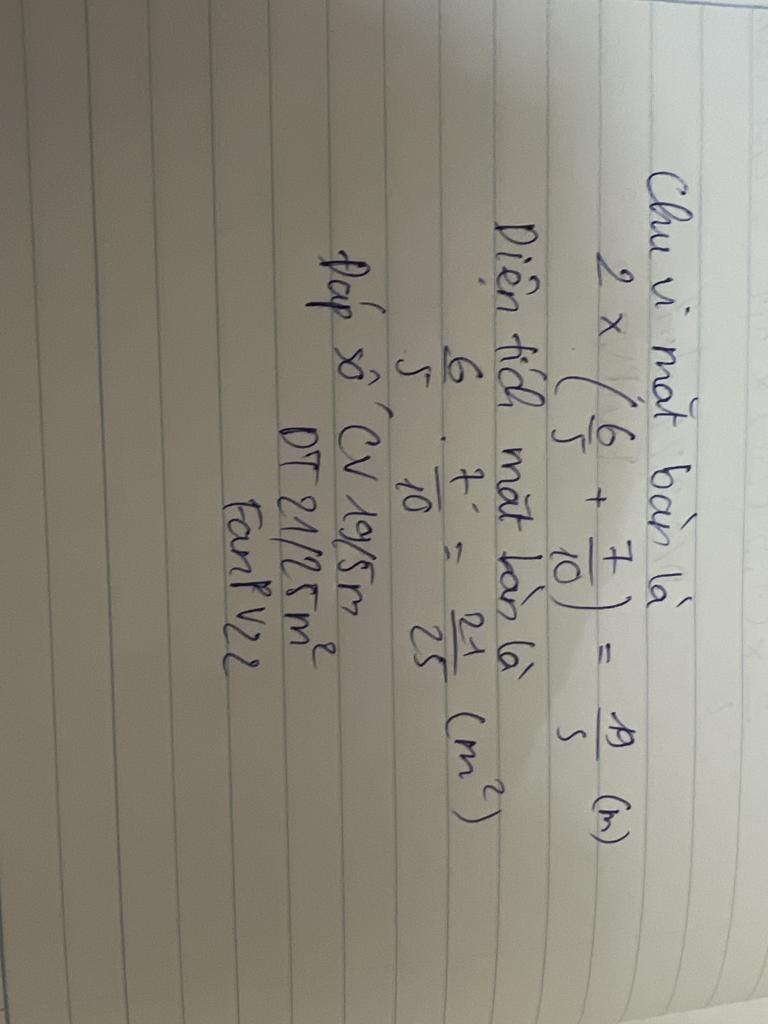 Chu vi mặt bàn là
2 x (6/5 + 7/10) = 19/5 (m)
Diện tích mặt bàn là
6/5 . 7/10 = 21/25 (m²)
Đáp số CV 19/5m
DT 21/25m²
FanPV22